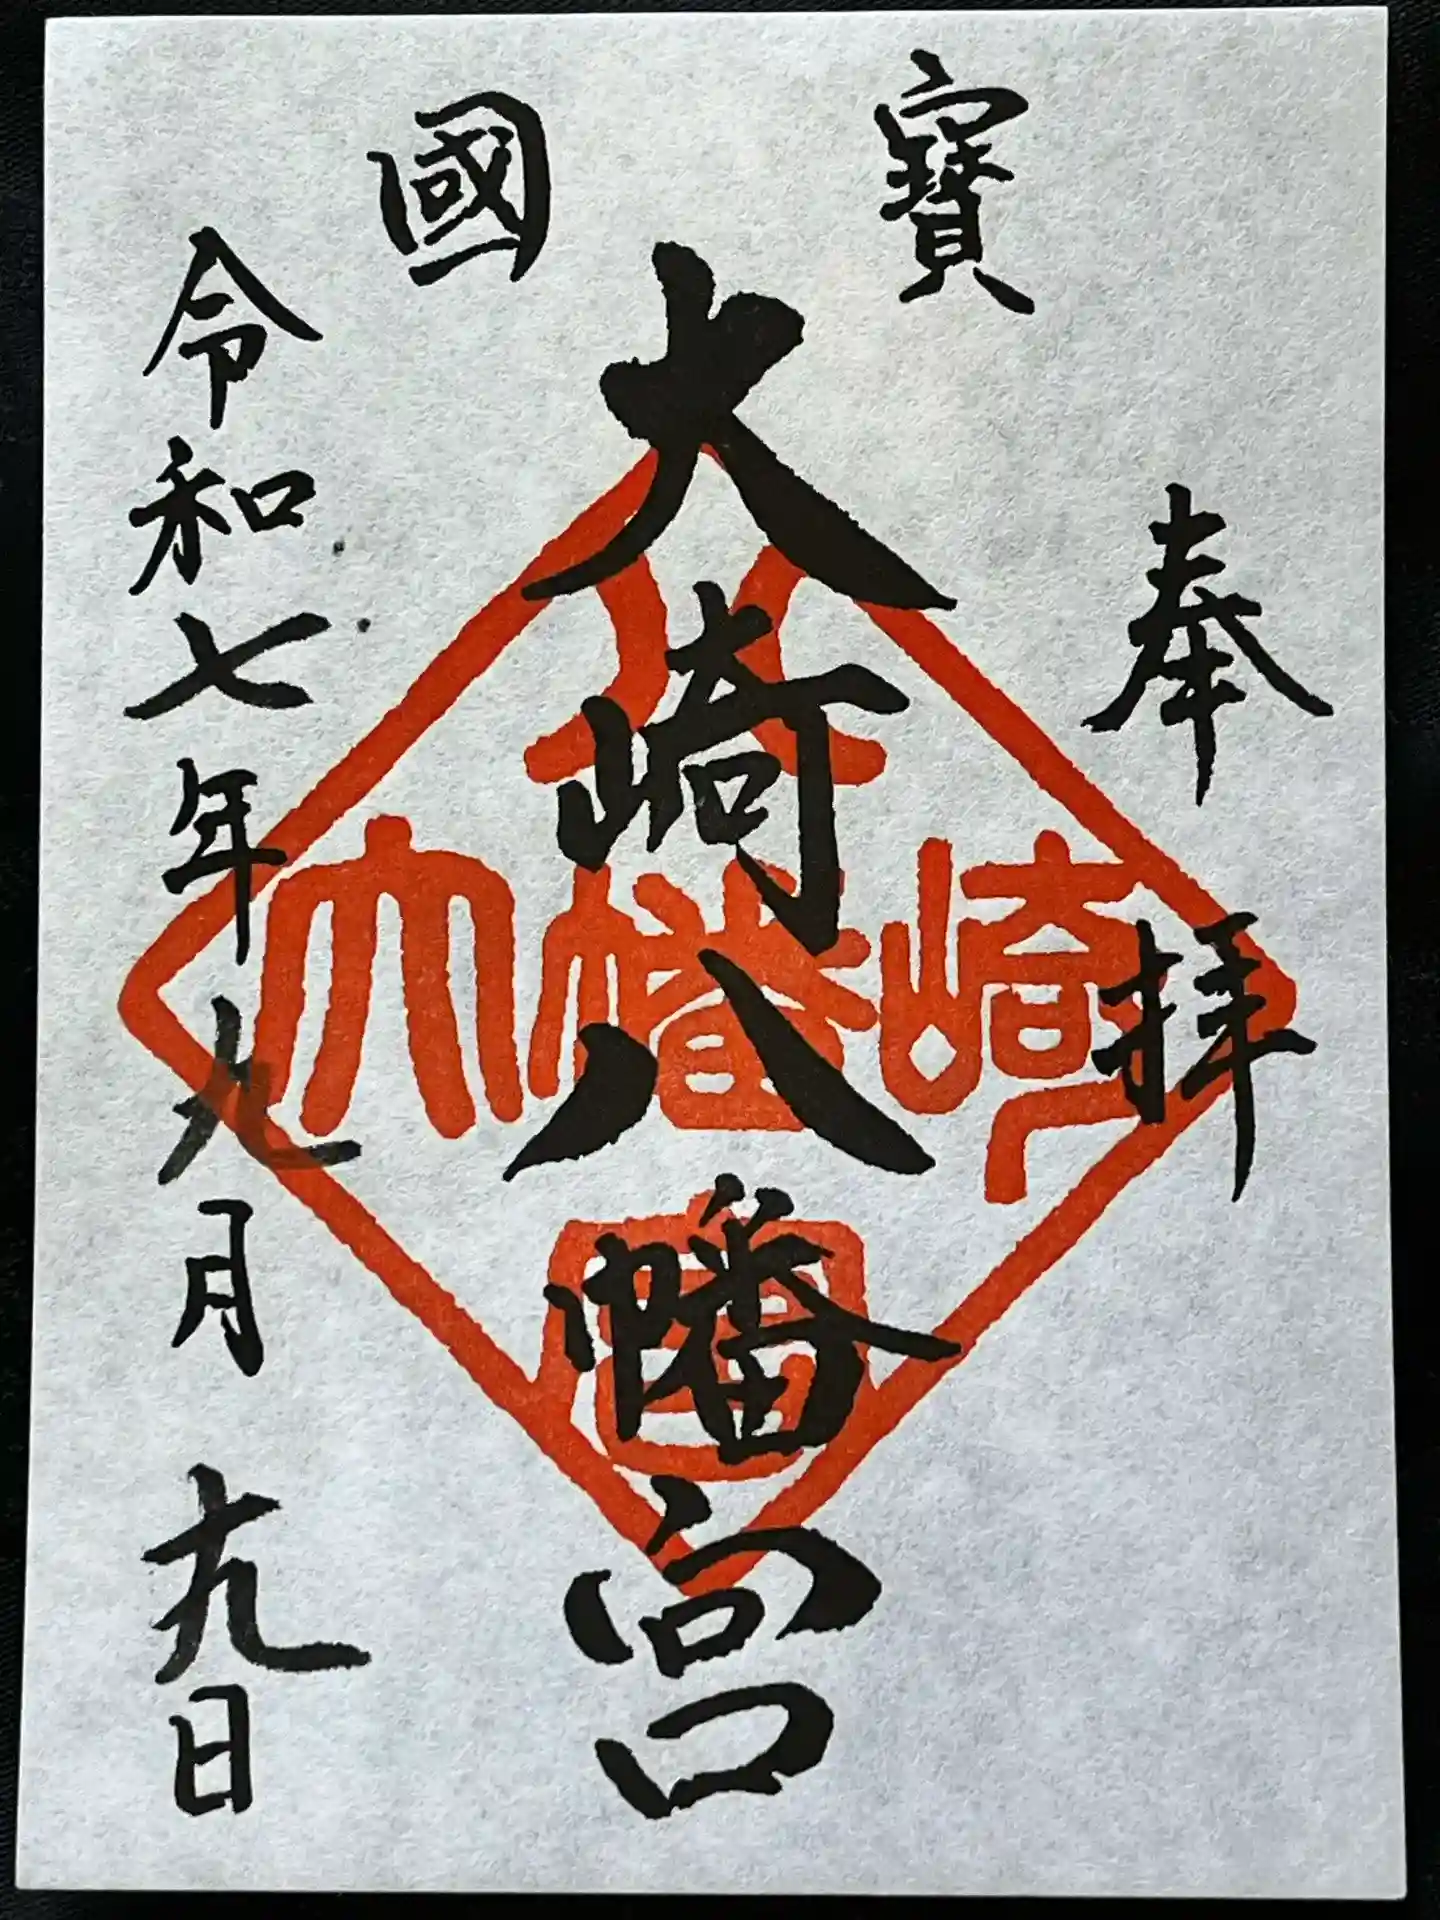 奉拝
國寶
大崎八幡宮
令和七年九月十九日
大崎八幡宮